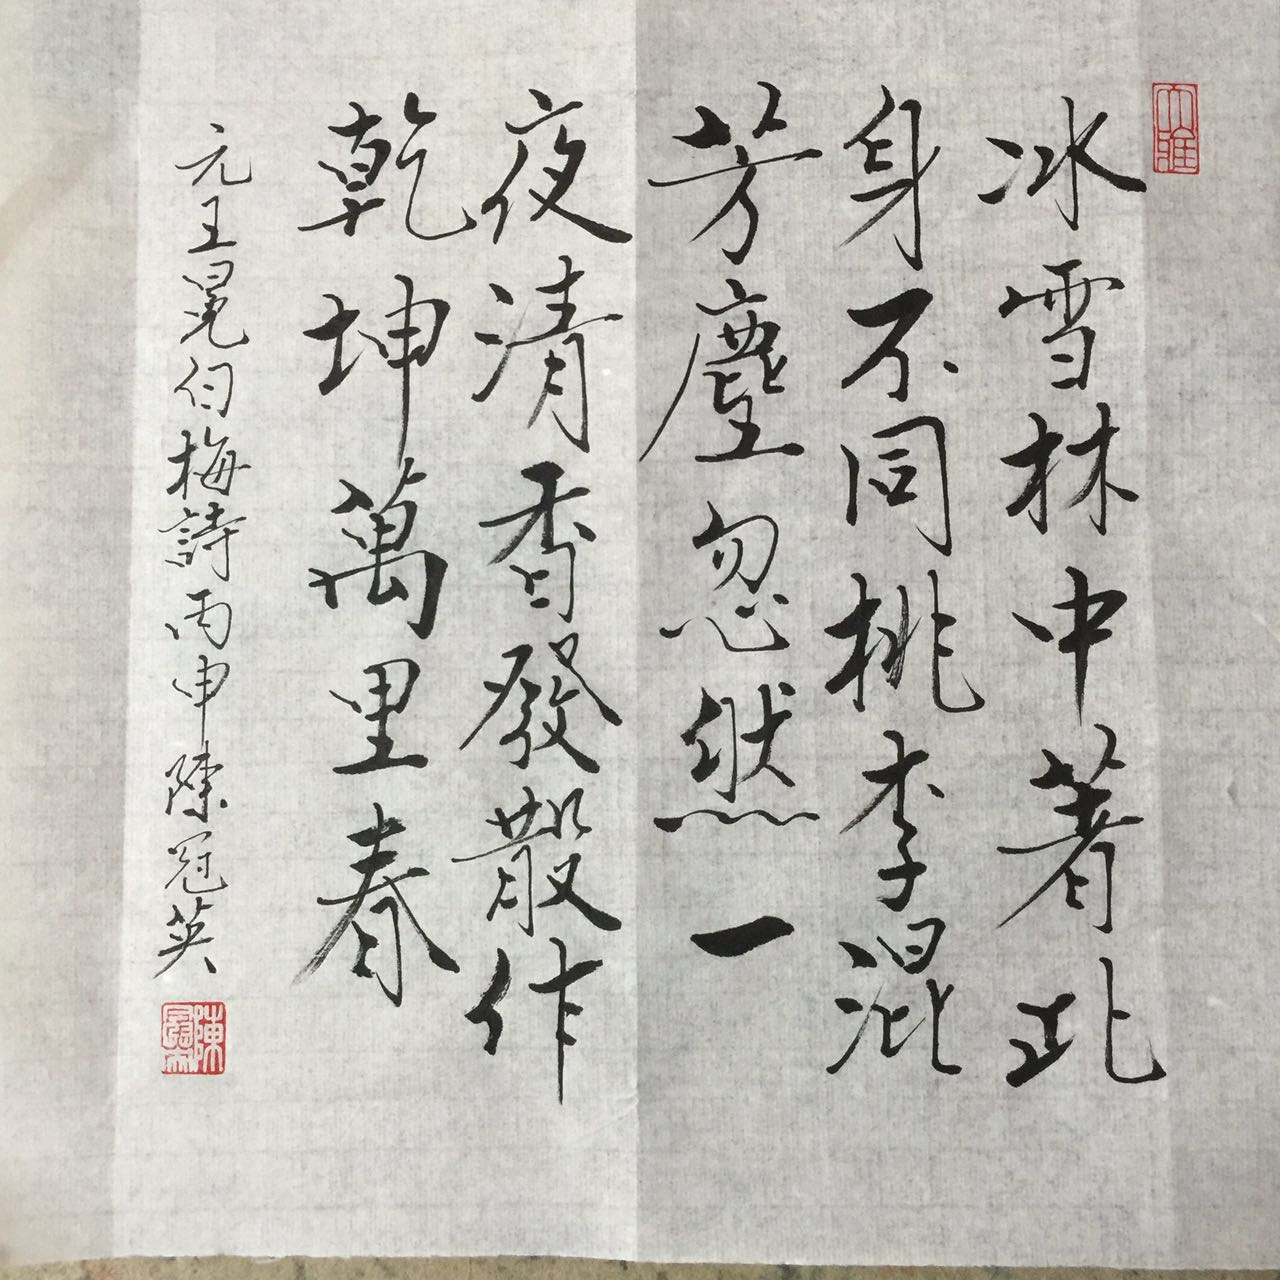 冰雪林中著此
身不同桃李混
芳塵忽然一
夜清香發散作
乾坤萬里春
元王冕白梅詩丙申陳冠英
大雅